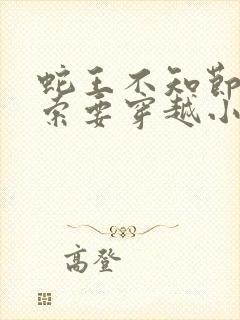 蛇王不知節
索要穿越小
高登